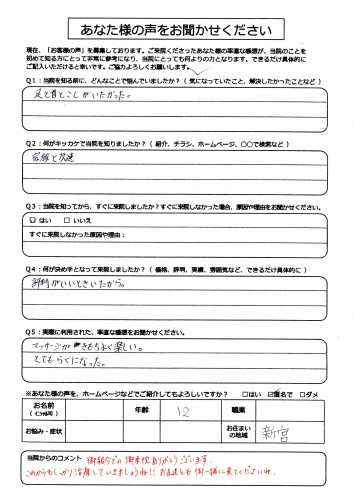 あなた様の声をお聞かせください
現在、「お客様の声」を募集しております。ご来院くださったあなた様の率直な感想が、当院のことを
初めて知る方にとって非常に参考になり、当院にとっても何よりの力となります。できるだけ具体的に
ご記入いただけると幸いです。ご協力よろしくお願いします。
Q1：当院を知る前に、どんなことで悩んでいましたか？（ 気になっていたこと、解決したかったことなど ）
足と首とこしがいたかった。
Q2：何がキッカケで当院を知りましたか？（ 紹介、チラシ、ホームページ、〇〇で検索など ）
家族と友達
Q3：当院を知ってから、すぐに来院しましたか？すぐに来院しなかった場合、原因や理由をお聞かせください。
☑ はい ☐ いいえ
すぐに来院しなかった原因や理由：
Q4：何が決め手となって来院しましたか？（ 価格、評判、実績、雰囲気など、できるだけ具体的に ）
評判がいいときいたから。
Q5：実際に利用された、率直な感想をお聞かせください。
マッサージがきもちよく楽しい。
とてもらくになった。
※あなた様の声を、ホームページなどでご紹介してもよろしいですか？ ☐はい ☑匿名で ☐ダメ
お名前 年齢 12 職業
（イニシャル可）
お悩み・症状 お住まいの地域 新宮
当院からのコメント 御紹介での御来院ありがとうございます。
これからもしっかり治療していきましょうね!! お友達とも御一緒に来てくださいね。